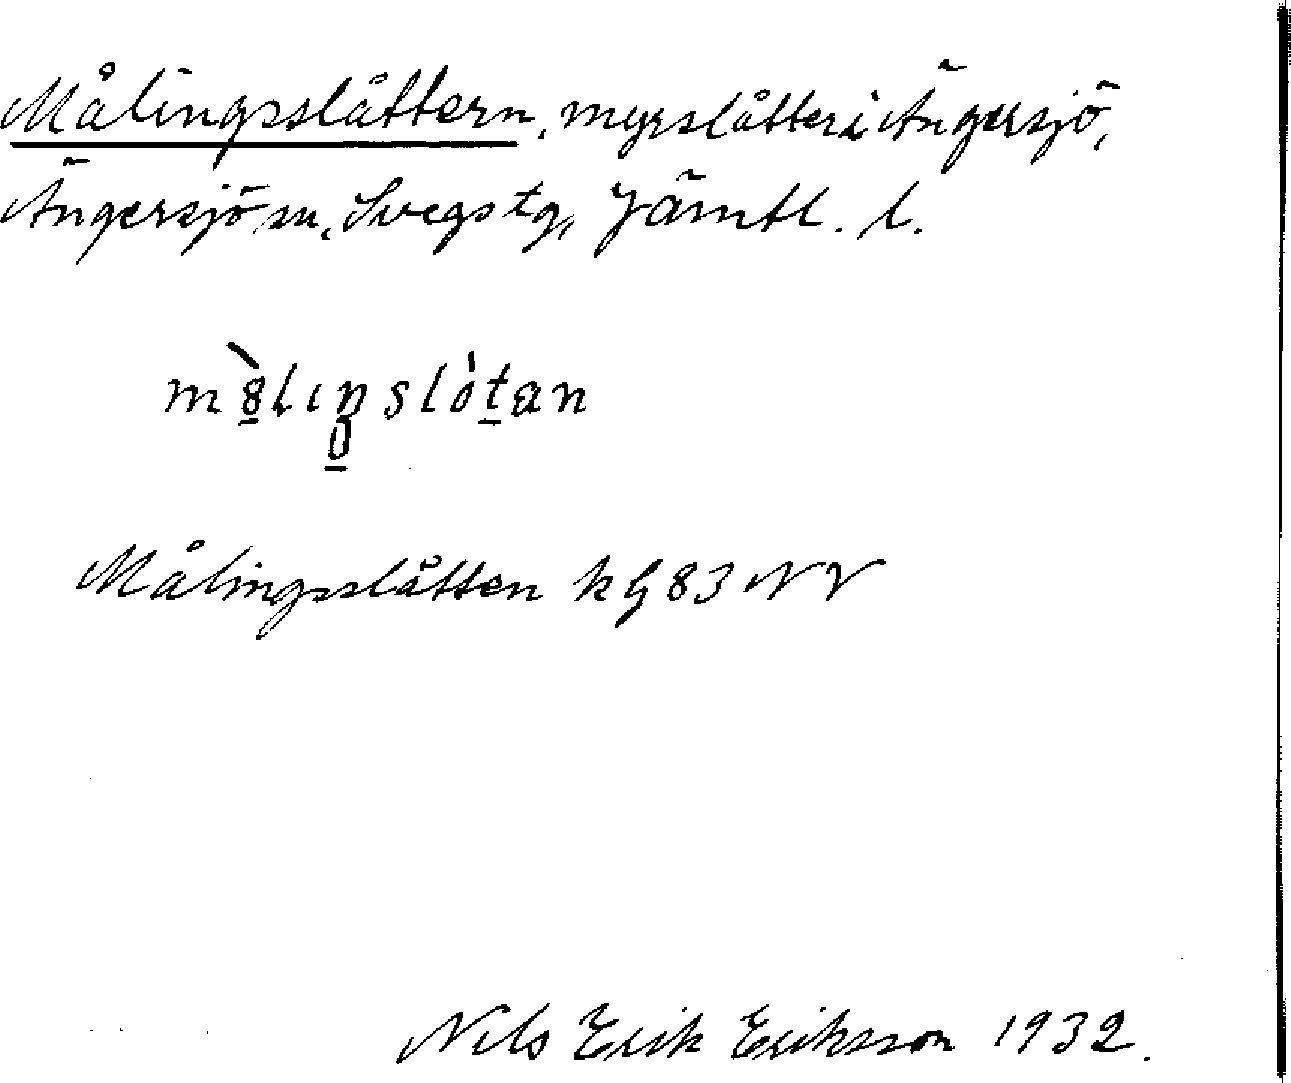 Målingsslåttern, myrslåtter i Ängersjö,
Ängersjö sn, Svegs tg, Jämtl. l.
m8̠̀lıŋslòt̠an
Målingsslåtten k G 83 NV
Nils Erik Eriksson 1932.